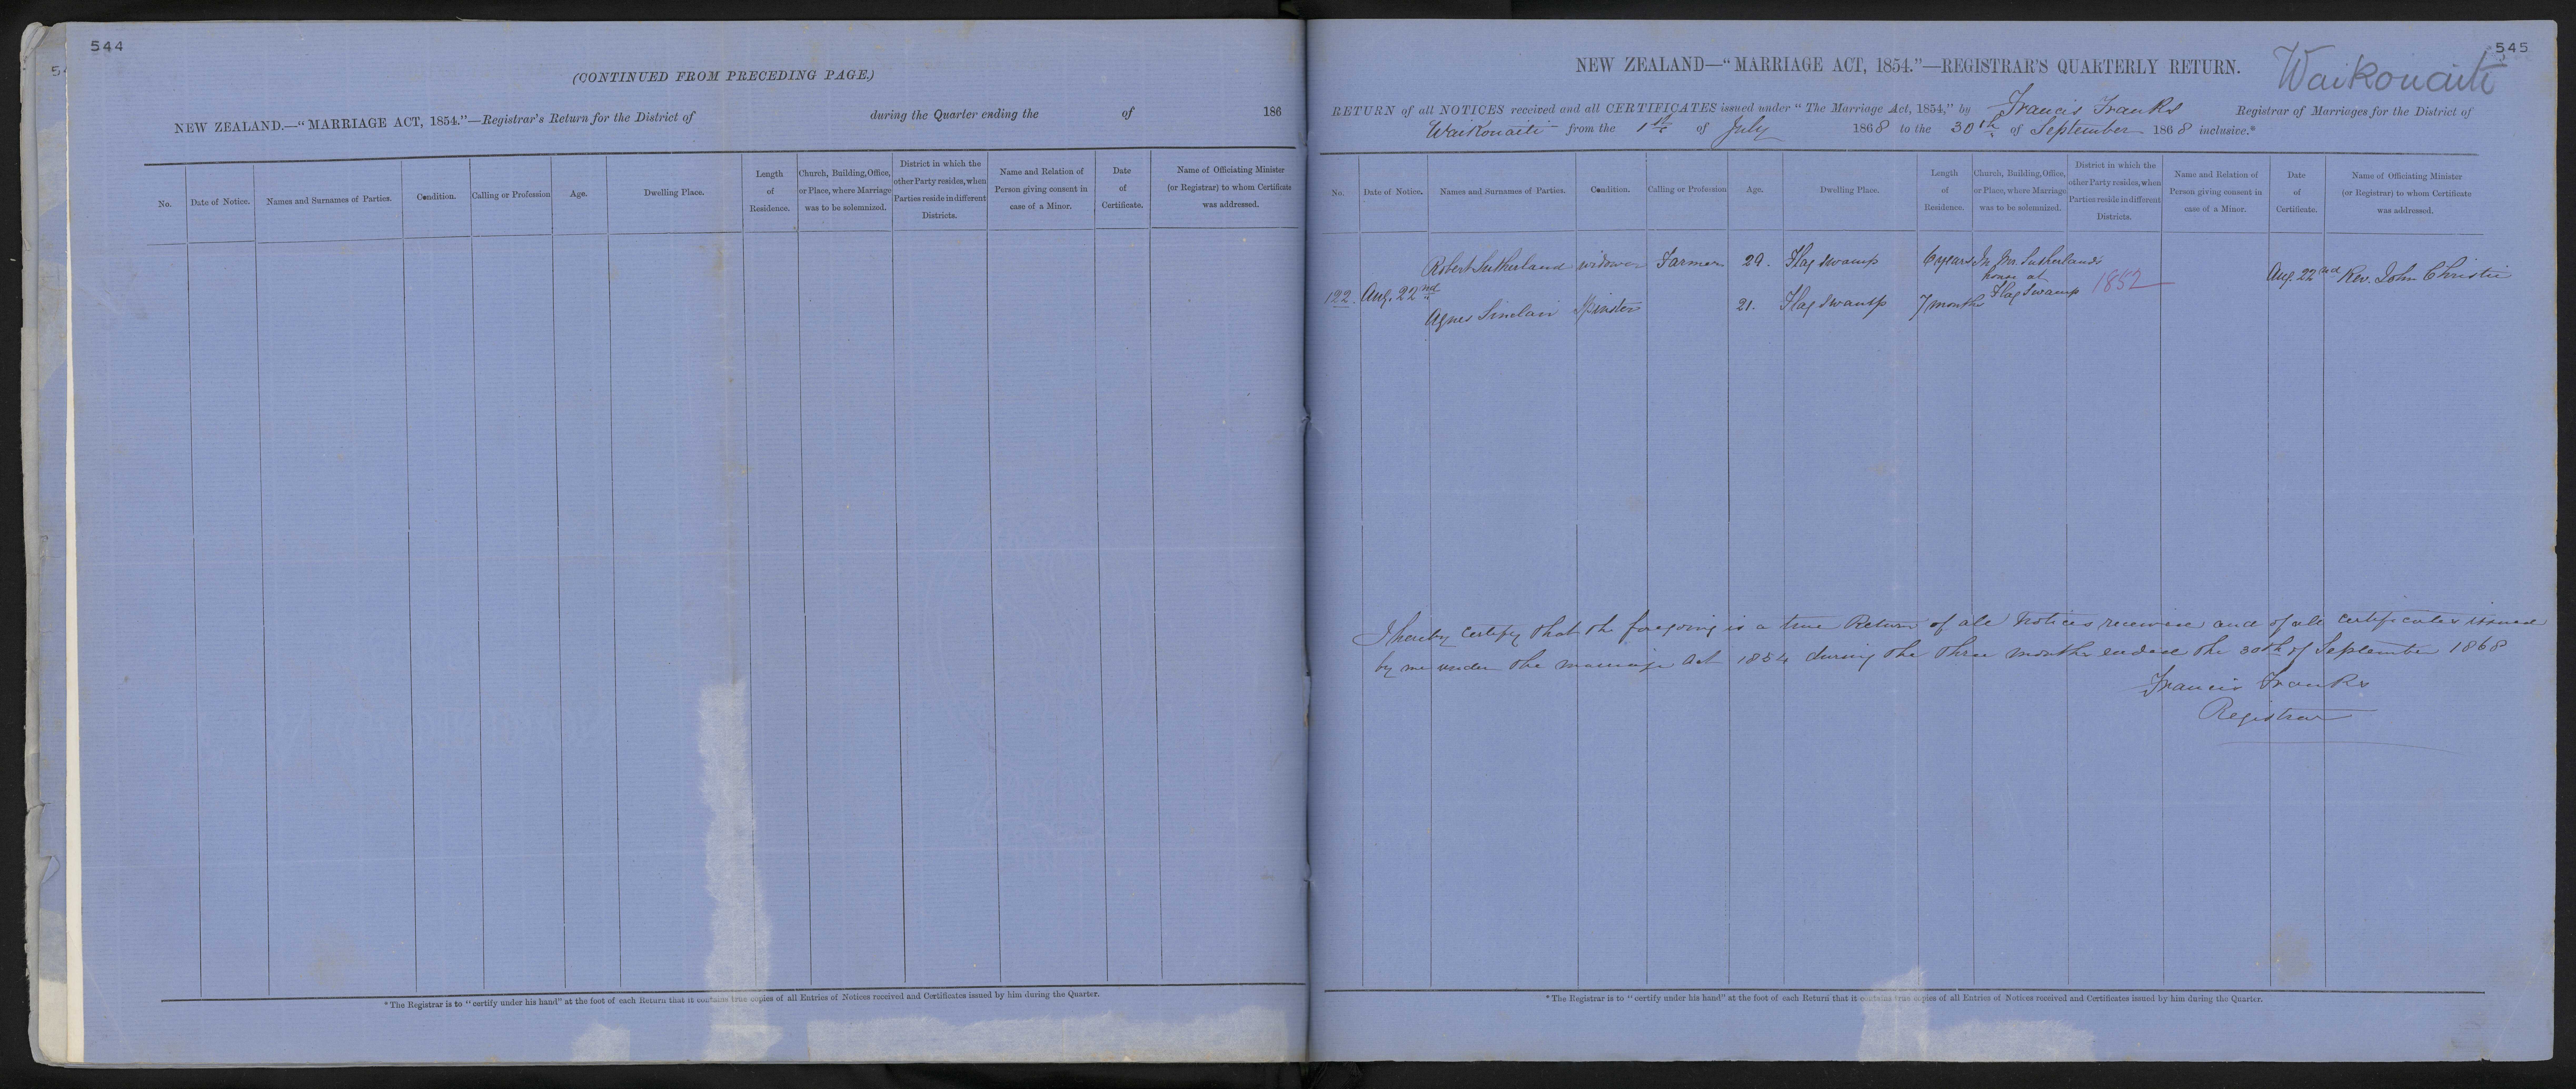 544
(CONTINUED FROM PRECEDING PAGE.)
NEW ZEALAND.—“MARRIAGE ACT, 1854.”—Registrar's Return for the District of during the Quarter ending the of 186
No. Date of Notice. Names and Surnames of Parties. Condition. Calling or Profession Age. Dwelling Place. Length of Residence. Church, Building, Office, or Place, where Marriage was to be solemnized. District in which the other Party resides, when Parties reside in different Districts. Name and Relation of Person giving consent in case of a Minor. Date of Certificate. Name of Officiating Minister (or Registrar) to whom Certificate was addressed.
*The Registrar is to “certify under his hand” at the foot of each Return that it contains true copies of all Entries of Notices received and Certificates issued by him during the Quarter.
545
NEW ZEALAND—“MARRIAGE ACT, 1854.”—REGISTRAR'S QUARTERLY RETURN.
Waikouaiti
RETURN of all NOTICES received and all CERTIFICATES issued under “The Marriage Act, 1854,” by Francis Franks Registrar of Marriages for the District of
Waikouaiti from the 1st of July 1868 to the 30th of September 1868 inclusive.*
No. Date of Notice. Names and Surnames of Parties. Condition. Calling or Profession Age. Dwelling Place. Length of Residence. Church, Building, Office, or Place, where Marriage was to be solemnized. District in which the other Party resides, when Parties reside in different Districts. Name and Relation of Person giving consent in case of a Minor. Date of Certificate. Name of Officiating Minister (or Registrar) to whom Certificate was addressed.
Robert Sutherland widower Farmer 29. Flag Swamp 6 years In Mr. Sutherland's
house at
122. Aug. 22nd Flag Swamp 1852 Aug. 22nd Rev. John Christie
Agnes Sinclair Spinster 21. Flag Swamp 7 months
I hereby certify that the foregoing is a true Return of all notices received and of all certificates issued
by me under the marriage Act 1854 during the three months ended the 30th of September 1868
Francis Franks
Registrar
*The Registrar is to “certify under his hand” at the foot of each Return that it contains true copies of all Entries of Notices received and Certificates issued by him during the Quarter.